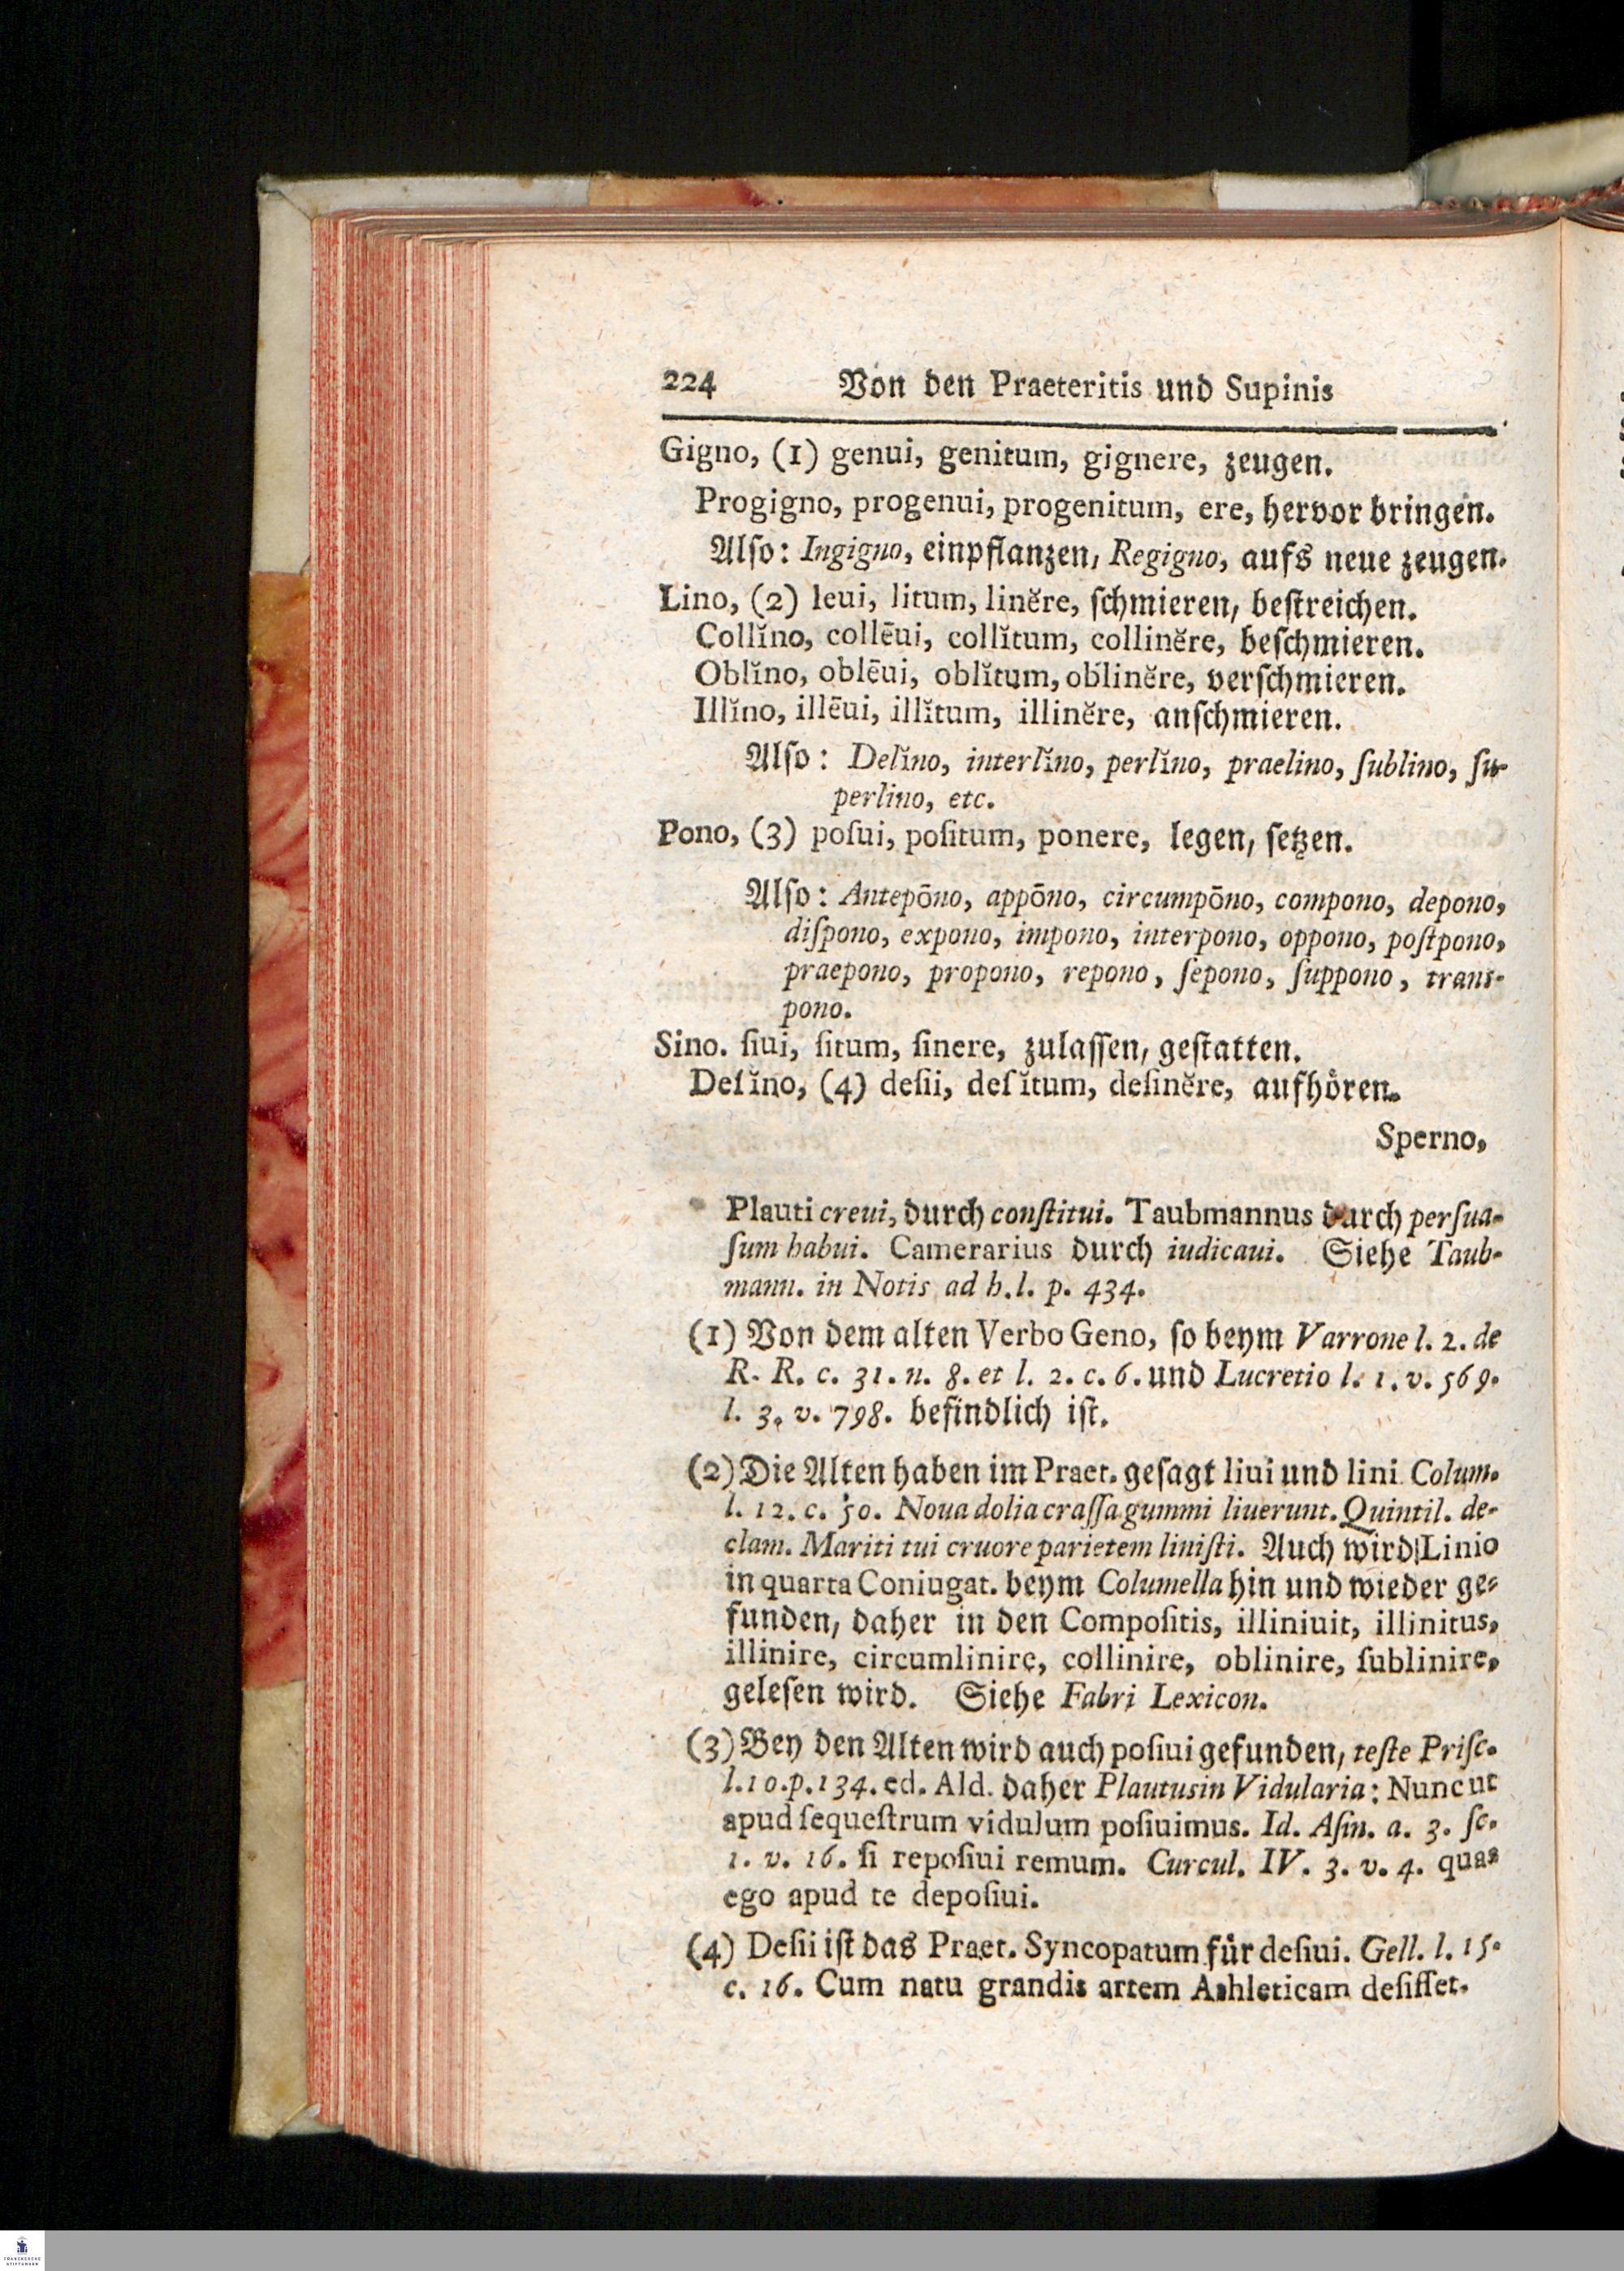 224 Von den Praeteritis und Supinis
Gigno, (1) genui, genitum, gignere, zeugen.
Progigno, progenui, progenitum, ere, hervor bringen.
Alſo: Ingigno, einpflanzen, Regigno, aufs neue zeugen.
Lino, (2) leui, litum, linĕre, ſchmieren, beſtreichen.
Collĭno, collēui, collĭtum, collinĕre, beſchmieren.
Oblĭno, oblēui, oblĭtum, oblinĕre, verſchmieren.
Illĭno, illēui, illĭtum, illinĕre, anſchmieren.
Alſo: Delĭno, interlĭno, perlĭno, praelino, ſublino, ſu-
perlino, etc.
Pono, (3) poſui, poſitum, ponere, legen, ſetzen.
Alſo: Antepōno, appōno, circumpōno, compono, depono,
diſpono, expono, impono, interpono, oppono, poſtpono,
praepono, propono, repono, ſepono, ſuppono, trans-
pono.
Sino. ſiui, ſitum, ſinere, zulaſſen, geſtatten.
Deſĭno, (4) deſii, deſĭtum, deſinĕre, aufhören.
Sperno,
Plauti creui, durch conſtitui. Taubmannus durch perſua-
ſum habui. Camerarius durch iudicaui. Siehe Taub-
mann. in Notis ad h. l. p. 434.
(1) Von dem alten Verbo Geno, ſo beym Varrone l. 2. de
R. R. c. 31. n. 8. et l. 2. c. 6. und Lucretio l. 1. v. 569.
l. 3. v. 798. befindlich iſt.
(2) Die Alten haben im Praet. geſagt liui und lini. Colum.
l. 12. c. 50. Noua dolia craſſa gummi liuerunt. Quintil. de-
clam. Mariti tui cruore parietem liniſti. Auch wird Linio
in quarta Coniugat. beym Columella hin und wieder ge-
funden, daher in den Compoſitis, illiniuit, illinitus,
illinire, circumlinire, collinire, oblinire, ſublinire,
geleſen wird. Siehe Fabri Lexicon.
(3) Bey den Alten wird auch poſiui gefunden, teſte Priſc.
l. 10. p. 134. ed. Ald. daher Plautus in Vidularia: Nunc ut
apud ſequeſtrum vidulum poſiuimus. Id. Aſin. a. 3. ſc.
1. v. 16. ſi repoſiui remum. Curcul. IV. 3. v. 4. quas
ego apud te depoſiui.
(4) Deſii iſt das Praet. Syncopatum für deſiui. Gell. l. 15.
c. 16. Cum natu grandis artem Athleticam deſiſſet.
FRANCKESCHE
STIFTUNGEN